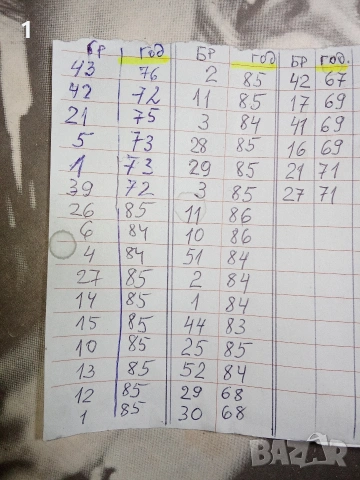 1
бр год БР год БР год.
43 76 2 85 42 67
42 72 11 85 17 69
21 75 3 84 41 69
5 73 28 85 16 69
1 73 29 85 21 71
39 72 3 85 27 71
26 85 11 86
6 84 10 86
4 84 51 84
27 85 2 84
14 85 1 84
15 85 44 83
10 85 25 85
13 85 52 84
12 85 29 68
1 85 30 68
BAZAR.BG